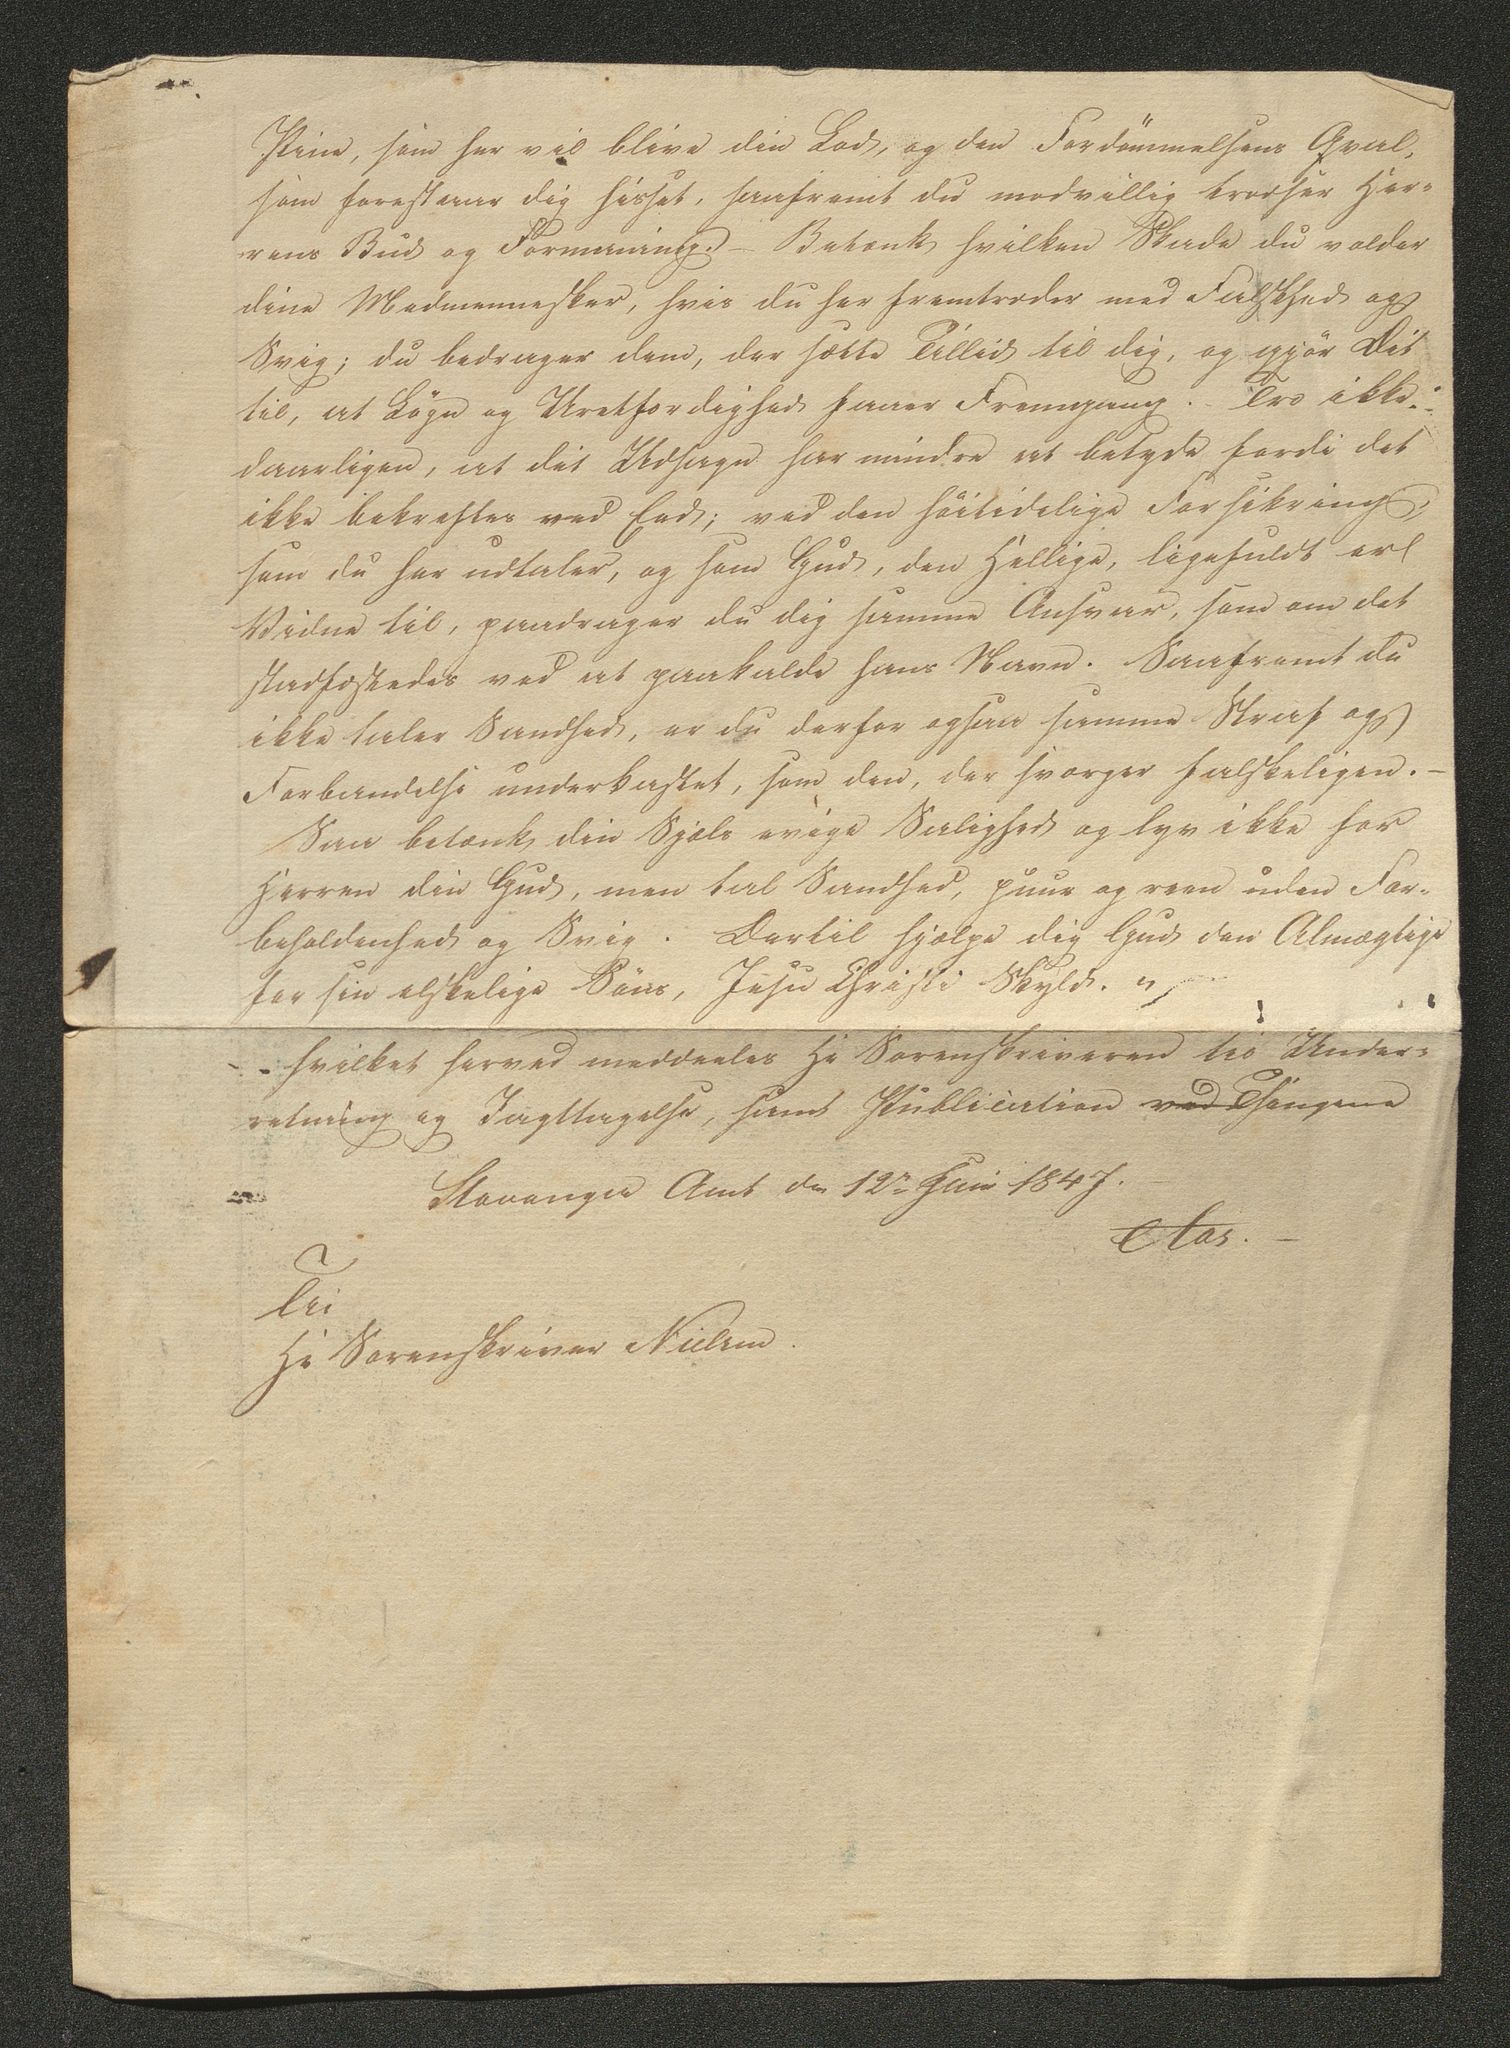 Pine, som her vil blive din Lod, og den Fordömmelsens Qval,
som forestaaer dig hisset, saafremt du modvillig trodser Her-
rens Bud og Formaning. – Betænk hvilken Skade du volder
dine Medmennesker, hvis du her fremtræder med Falskhed og
Svig; du bedrager dem, der sætte Tillid til dig, og gjör Dit
til, at Lögn og Uretfærdighed faaer Fremgang. – Tro ikke
daarligen, at dit Udsagn har mindre at betyde fordi det
ikke bekræftes ved Eed; ved den höitidelige Forsikring,
som du her udtaler, og som Gud, den Hellige, ligefuldt er
Vidne til, paadrager du dig samme Ansvar, som om det
stadfæstedes ved at paakalde hans Navn. Saafremt du
ikke taler Sandhed, er du derfor ogsaa samme Straf og
Forbandelse underkastet, som den, der sværger falskeligen. –
Saa betænk din Sjæls evige Salighed og lyv ikke for
Herren din Gud, men tal Sandhed, puur og reen uden For-
beholdenhed og Svig. Dertil hjælpe dig Gud den Almægtige
for sin elskelige Söns, Jesu Christi Skyld. "
hvilket herved meddeeles Hr Sorenskriveren til Under-
retning og Iagttagelse, samt Publication ved Thingene
Stavanger Amt den 12te Juni 1847.
Aas. –
Til
Hr Sorenskriver Nielsen.